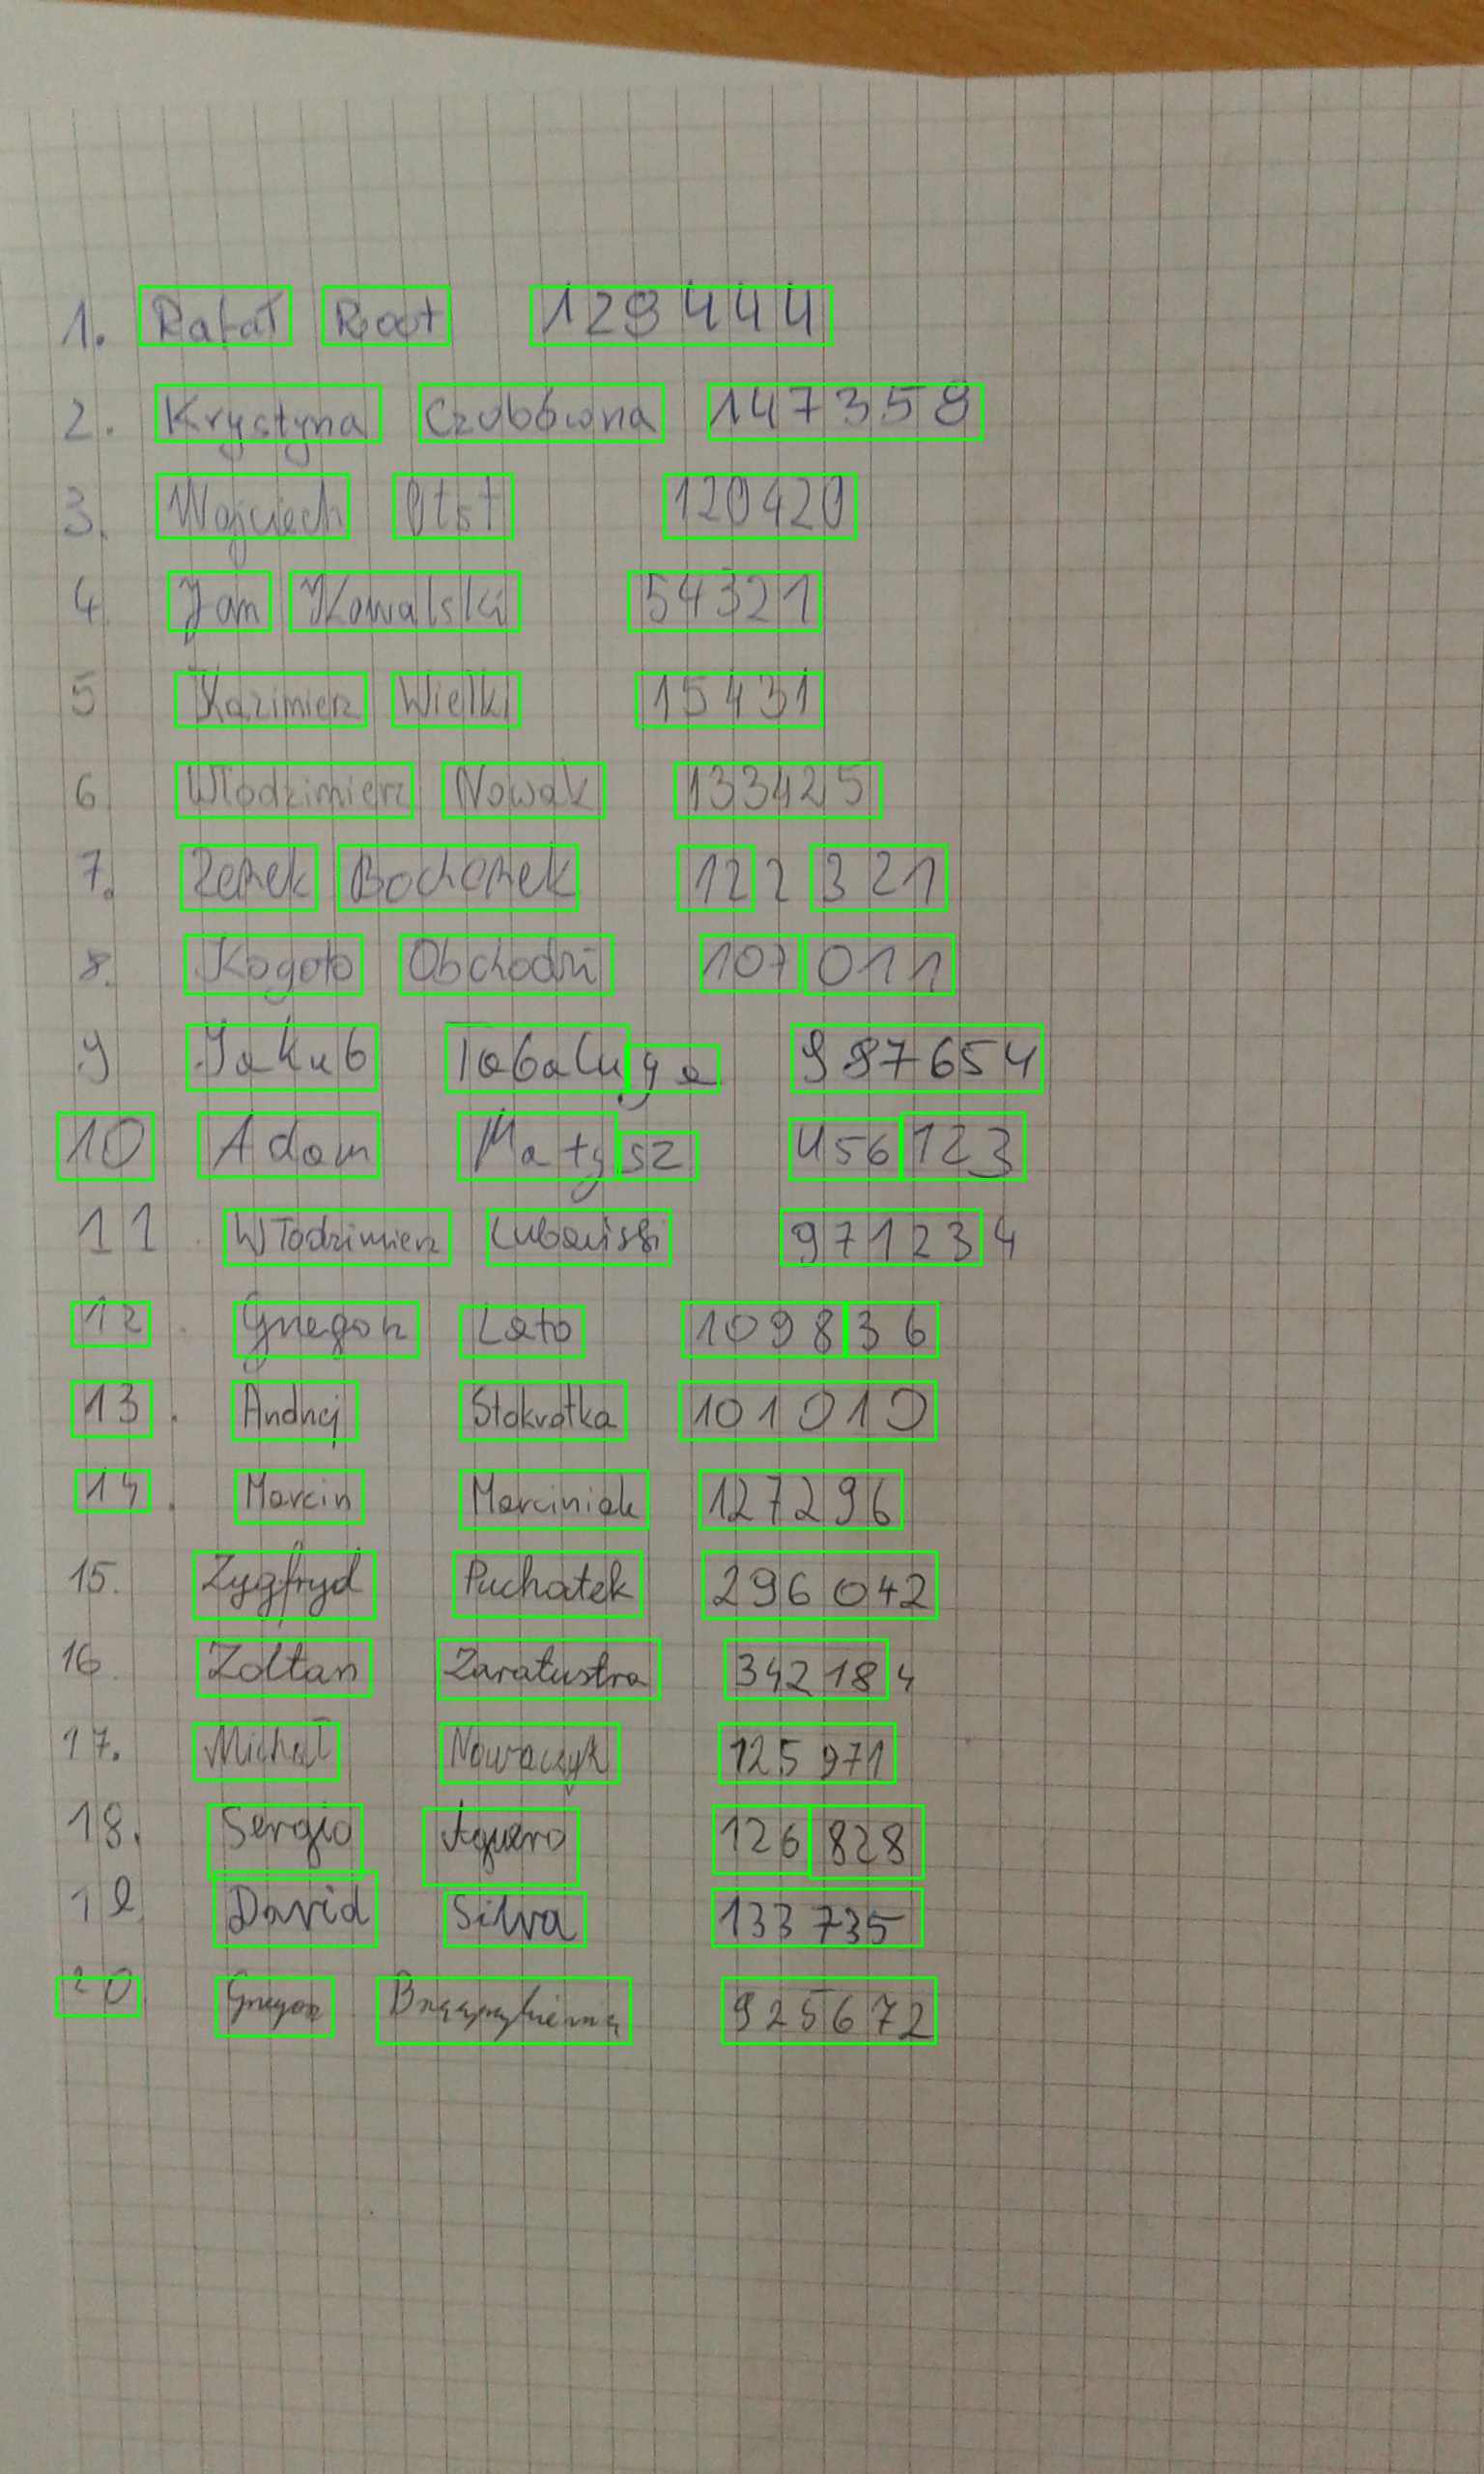 1. Rafał Root 129444
2. Krystyna Czubówna 147359
3. Wojciech Otst 120420
4 Jan Kowalski 54321
5 Kazimierz Wielki 15431
6 Włodzimierz Nowak 133425
7. Zenek Bochenek 122321
8. Kogoto Obchodzi 107011
9 Jakub Tabaluga 987654
10 Adam Matysz 456123
11. Włodzimierz Lubański 971234
12. Grzegorz Lato 109836
13. Andrzej Stokrotka 101010
14. Marcin Marciniak 127296
15. Zygfryd Puchatek 296042
16. Zoltan Zaratustra 342184
17. Michał Nowaczyk 125971
18. Sergio Aguero 126828
19. David Silva 133735
20. Grzegorz 925672